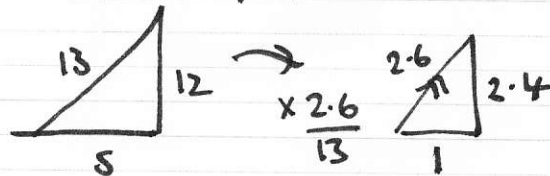 13
12
5
× 2.6
13
2.6
2.4
1